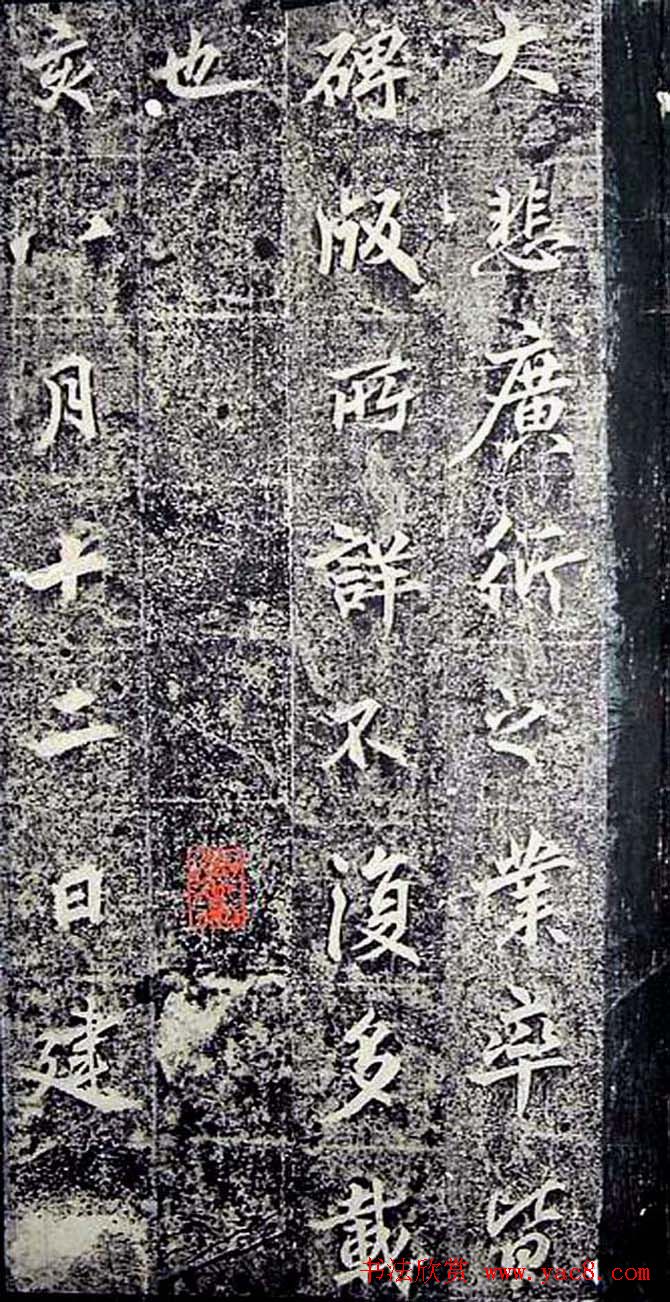 大悲廣衍之業率皆
碑版所詳不復多載
也
亥八月十二日建
书法欣赏 www.yac8.com